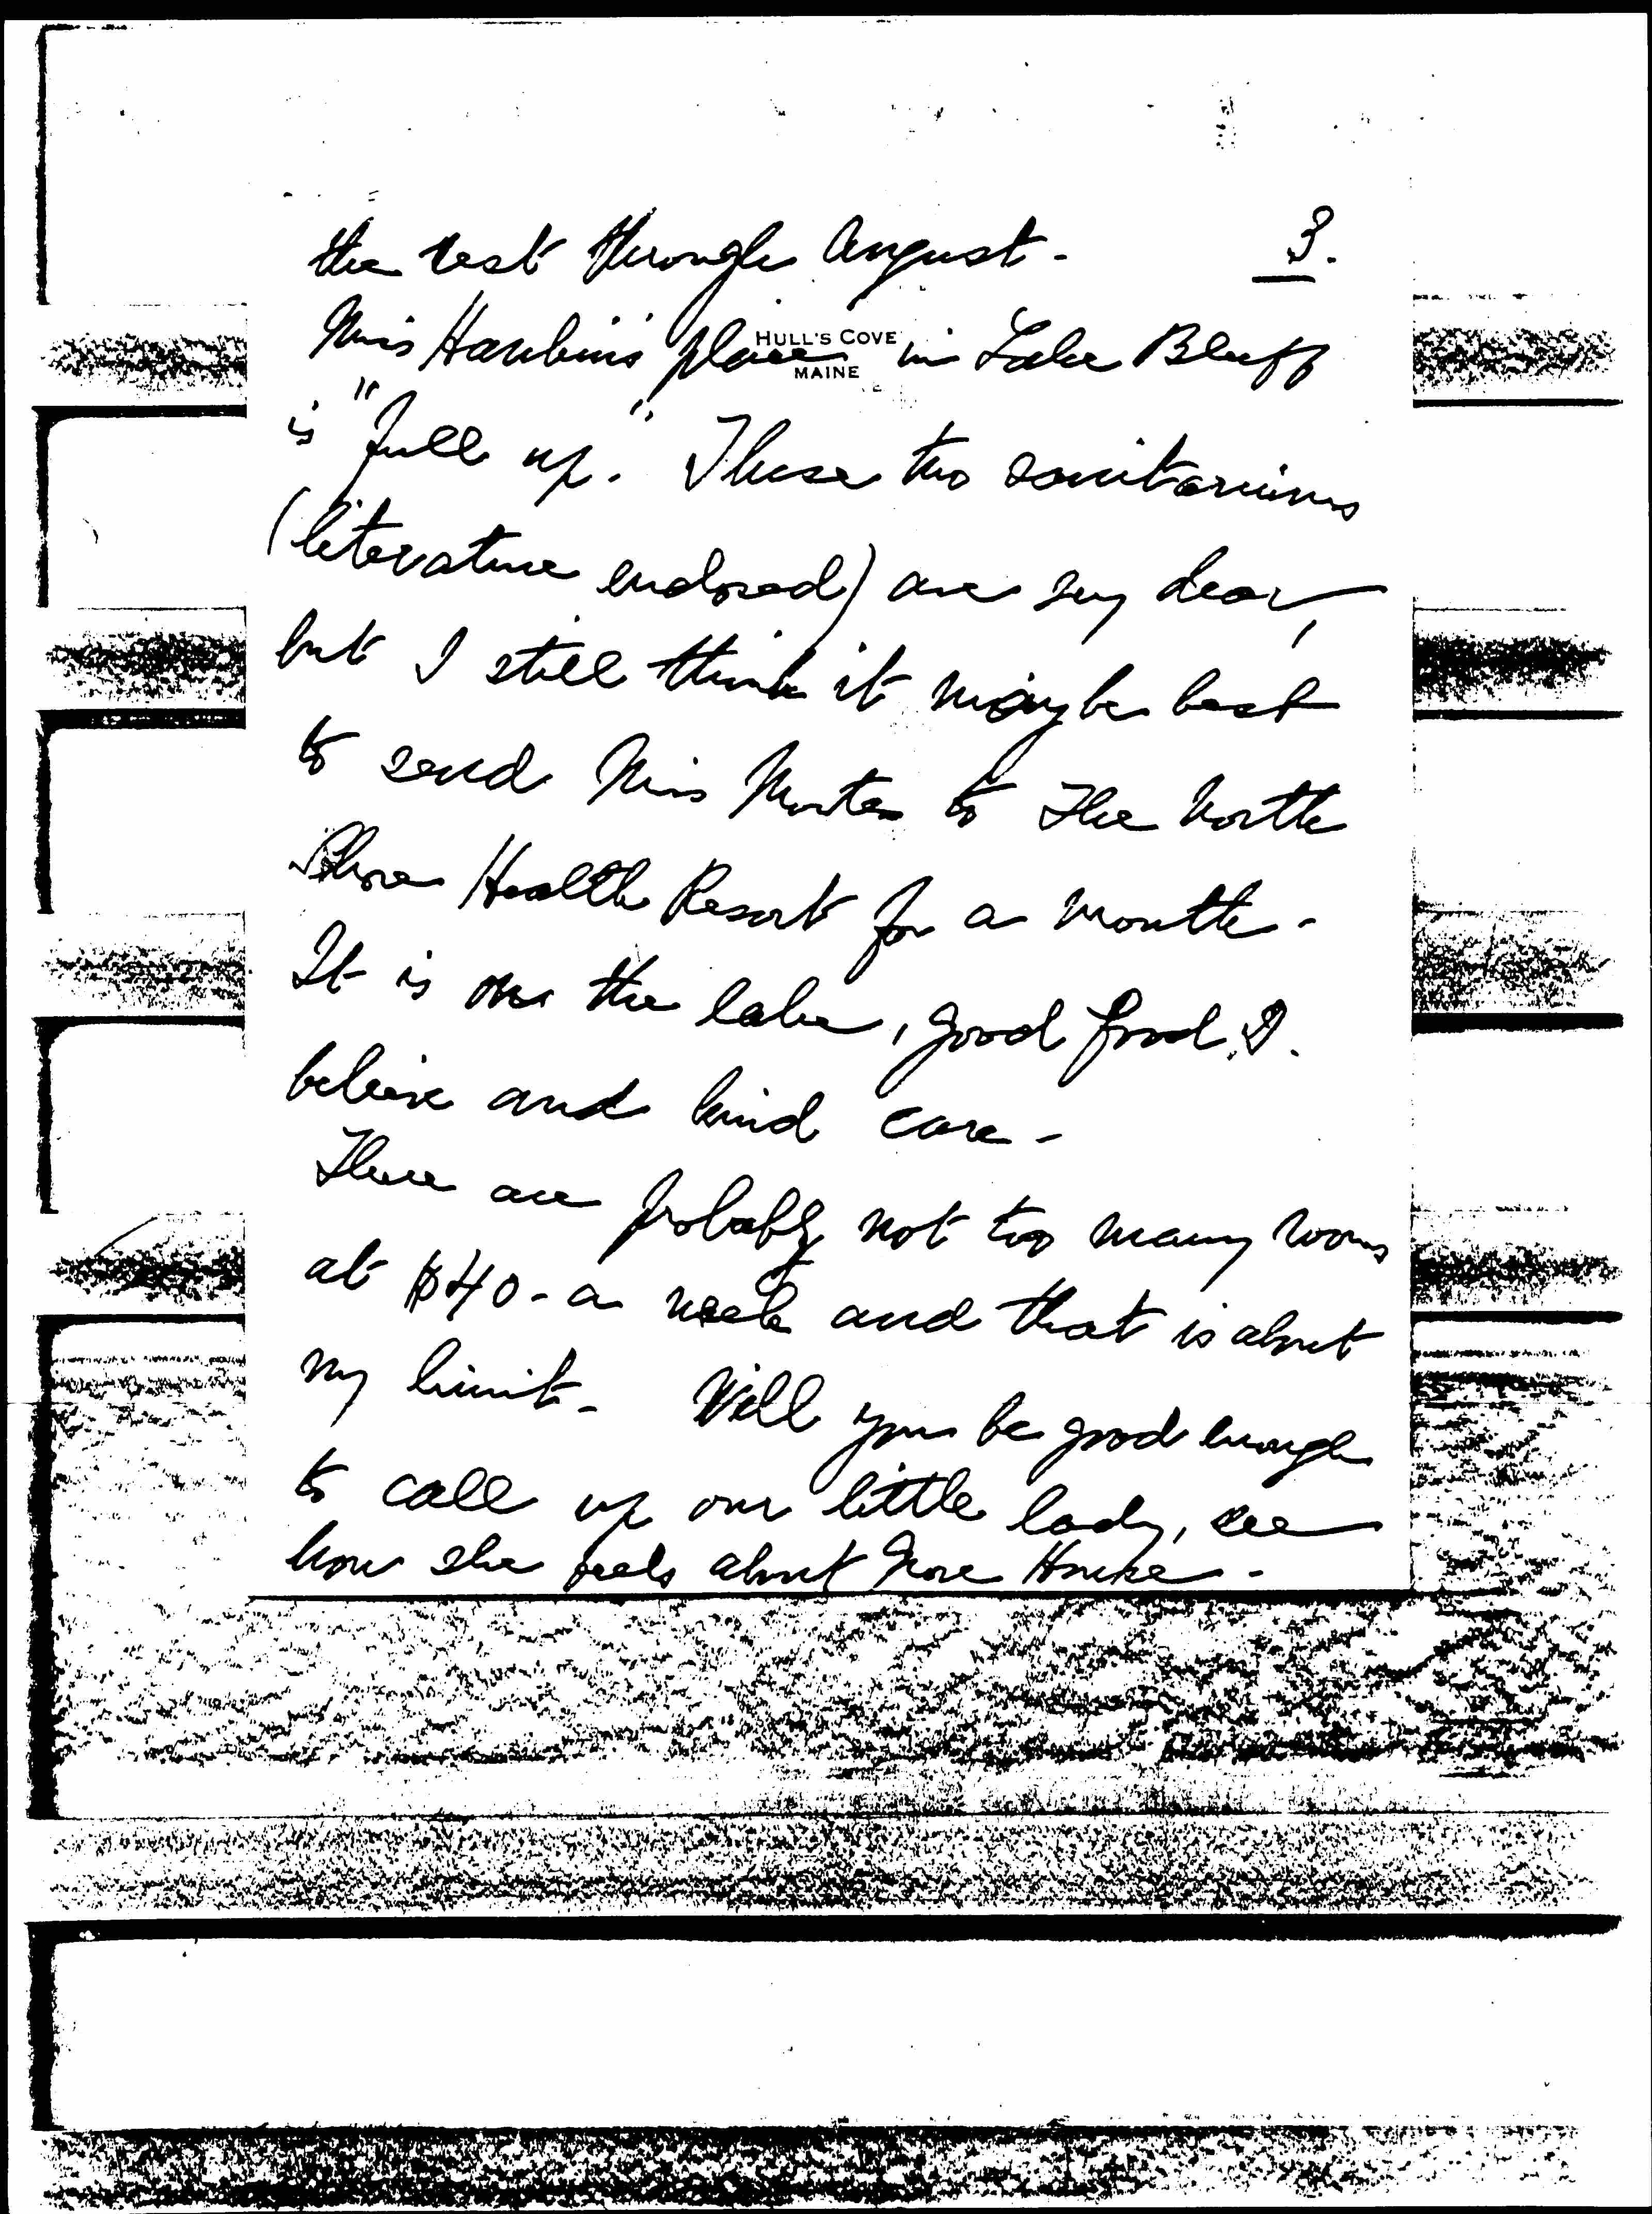 the rest through August - 3.
HULL'S COVE
MAINE
Miss place in Lake Bluff
is "full up." These two sanitariums
(literature enclosed) are very dear,
but I still think it may be best
to send Miss to The North
Shore Health Resort for a month -
It is on the lake, good food, I
believe and kind care -
There are probably not too many rooms
at $40 - a week and that is about
my limit - Will you be good enough
to call up our little lady, see
how she feels about House -